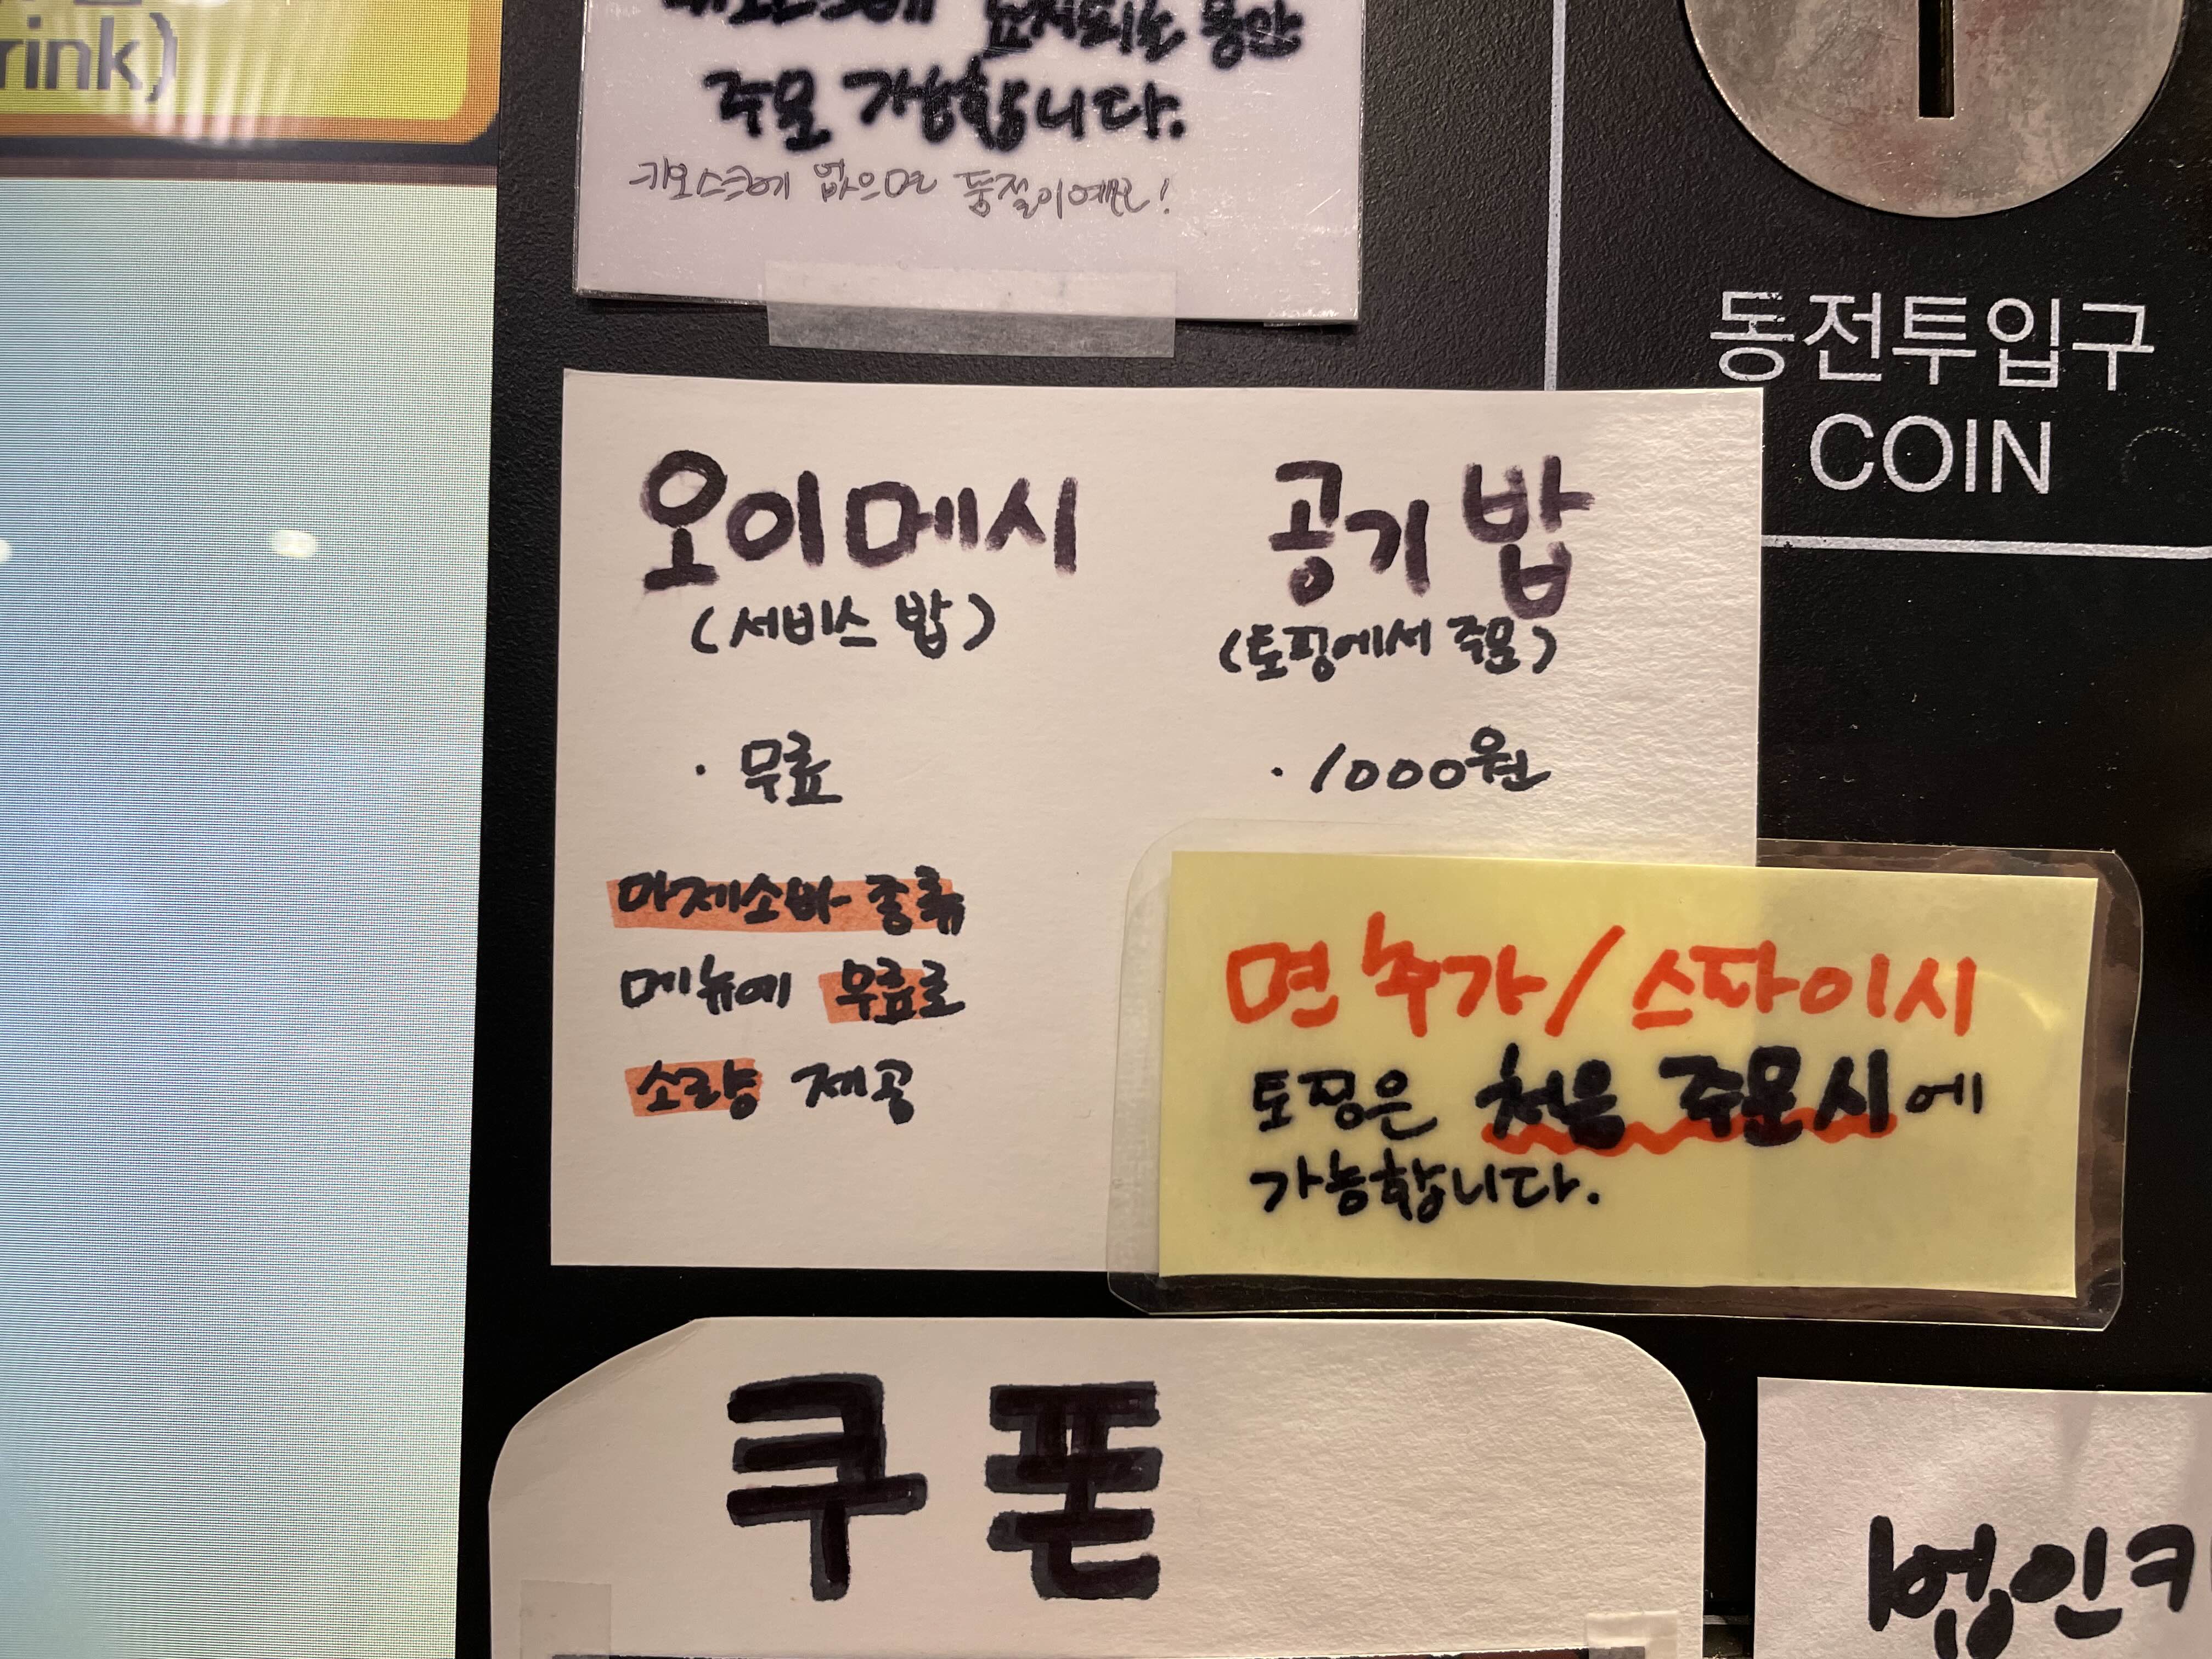 rink)
키오스크에 표시되는 동안
주문 가능합니다.
키오스크에 없으면 품절이예요!
동전투입구
COIN
오이메시
(서비스 밥)
· 무료
마제소바 종류
메뉴에 무료로
소량 제공
공기밥
(토핑에서 주문)
· 1000원
면 추가/스파이시
토핑은 처음 주문시에
가능합니다.
쿠폰
법인카